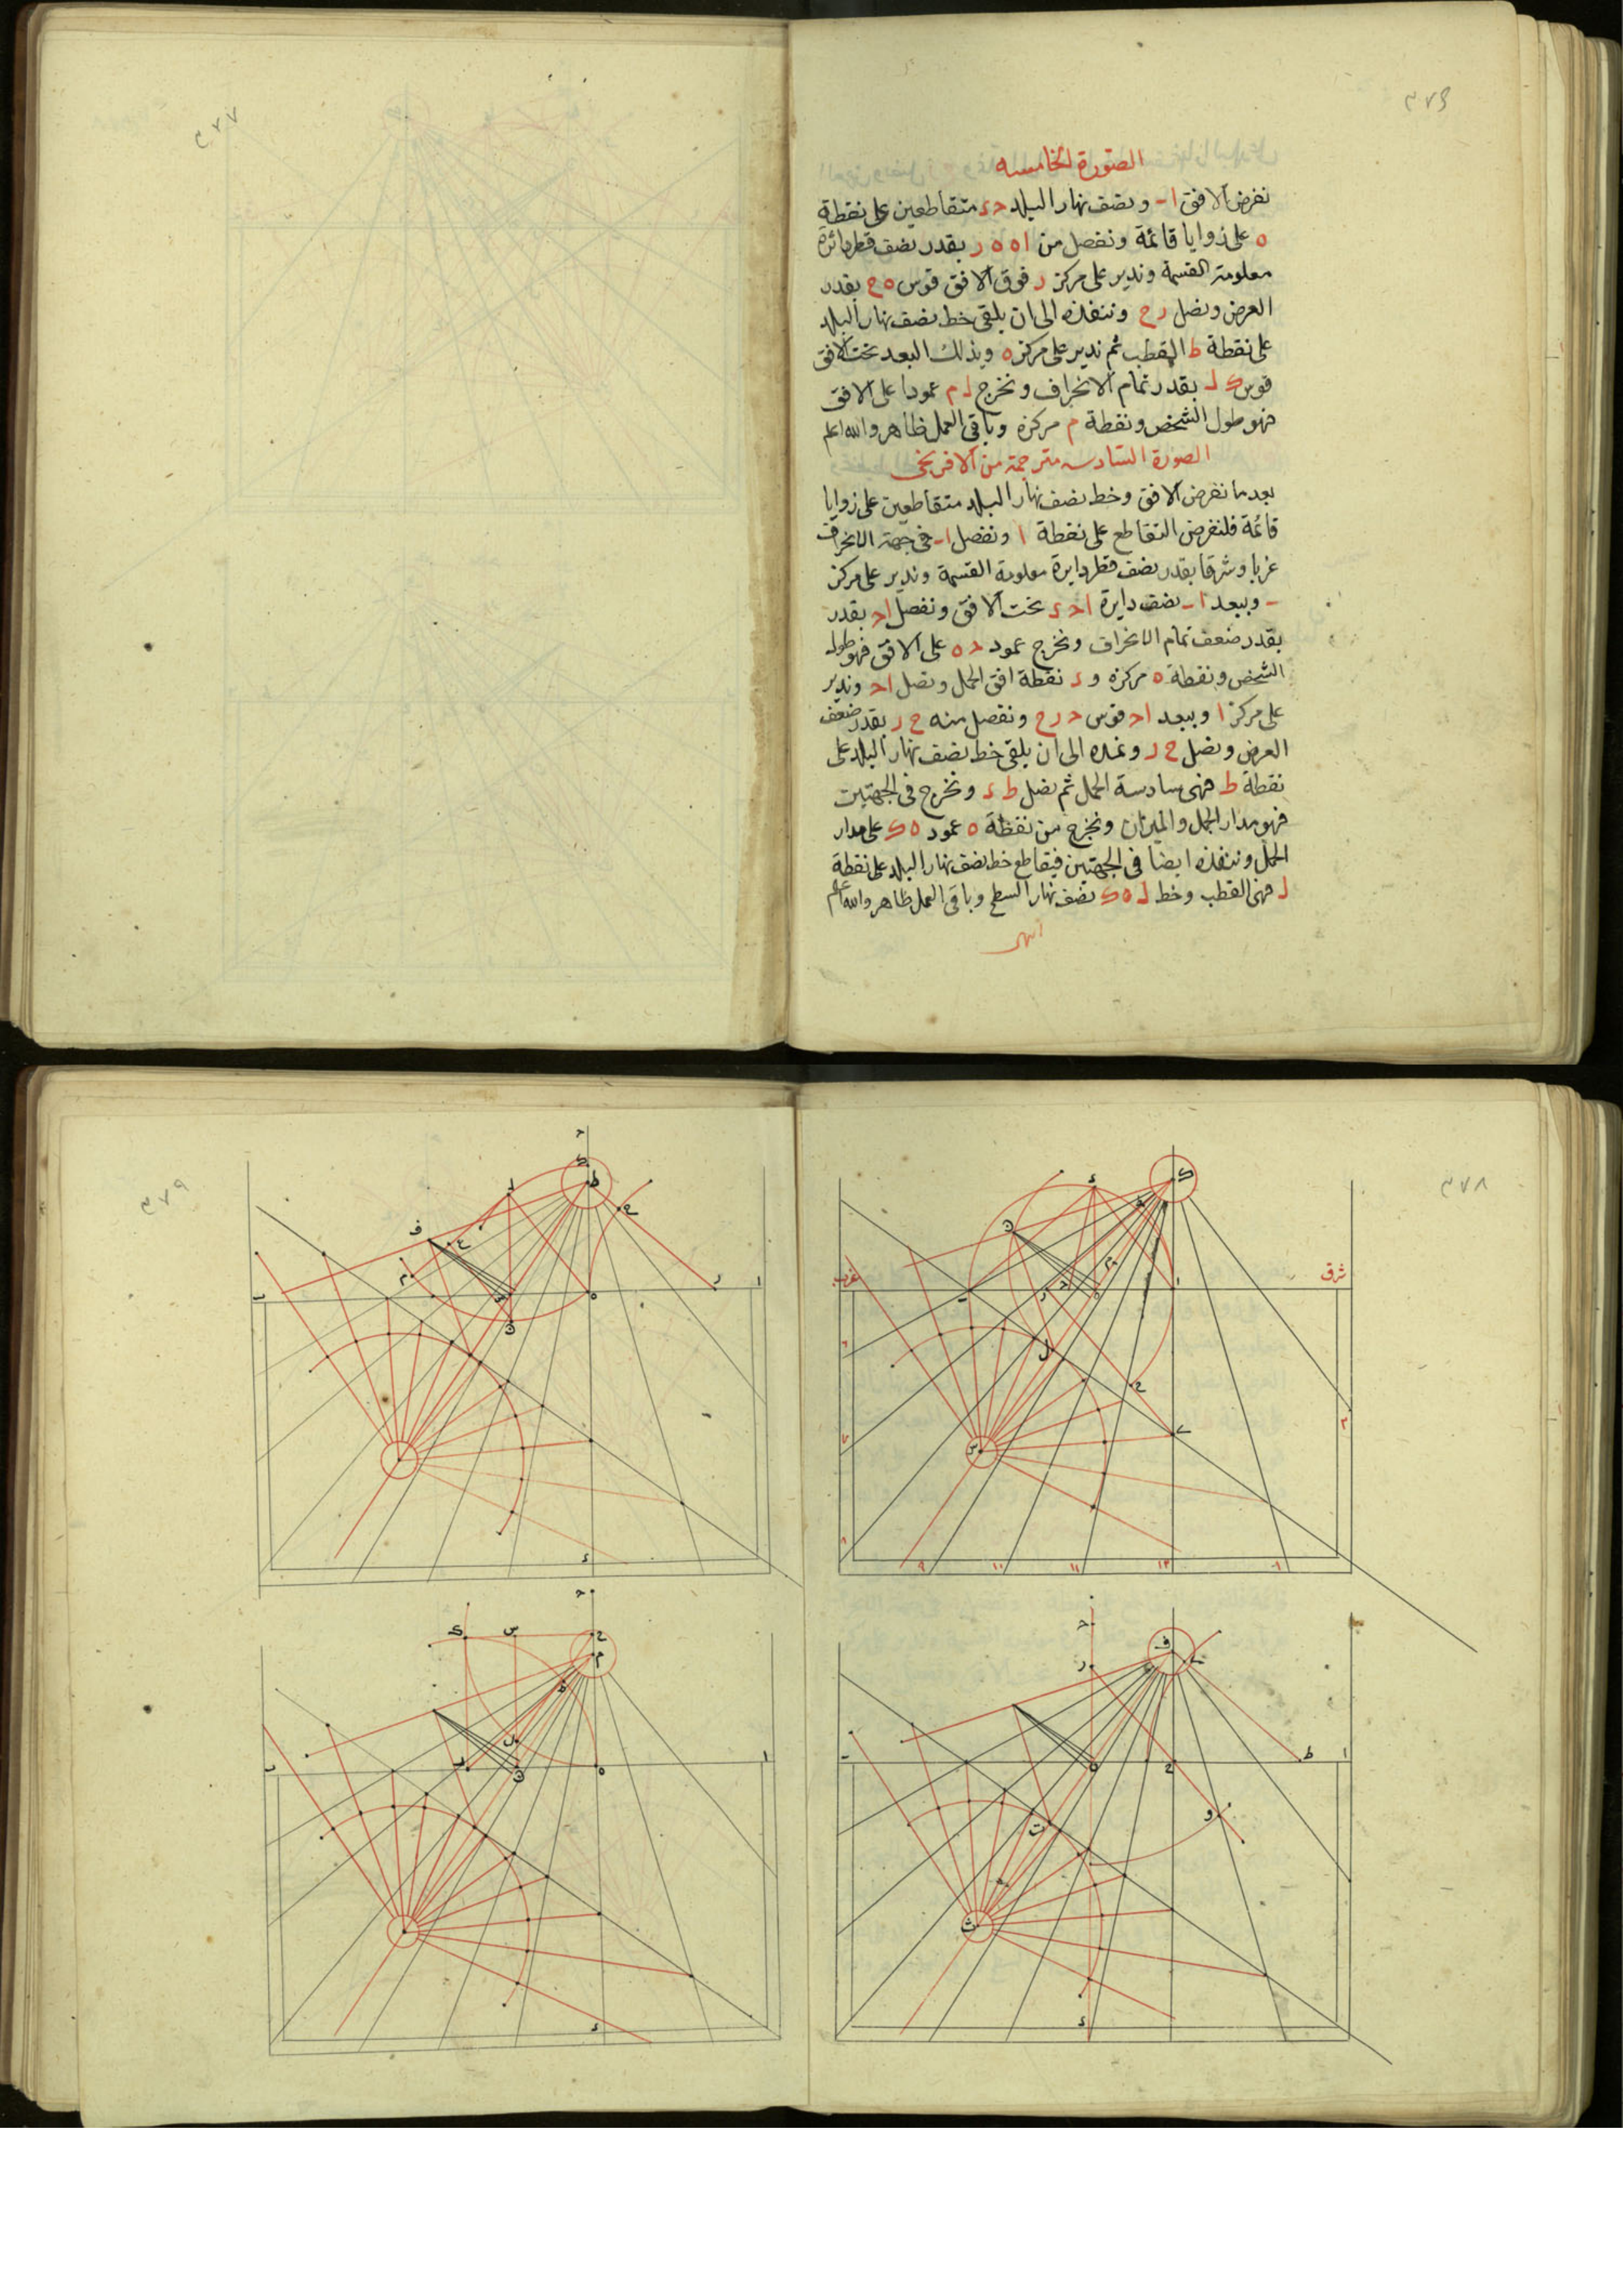 ٣٧٦
الصورة الخامسه
نفرض الافق ا ب ونصف نهار البلد حد متقاطعين على نقطة
ه على زوايا قائمة ونفصل من ا ه ه ر بقدر نصف قطر دائرة
معلومة القسمة وندير على مركز ر فوق الافق قوس ه ح بقدر
العرض ونصل رح وننفذه الى ان يلقى خط نصف نهار البلد
على نقطة ط القطب ثم ندير على مركز ه وبذلك البعد تحت الافق
قوس ك ل بقدر تمام الانحراف ونخرج ل م عمودا على الافق
فهو طول الشخص ونقطة م مركزه وباقى العمل ظاهر والله اعلم
الصورة السادسه مترجمة من الافرنجى
بعد ما نفرض الافق وخط نصف نهار البلد متقاطعين على زوايا
قائمة فلنفرض التقاطع على نقطة ا ونفصل ا ب فى جهة الانحراف
غربا وشرقا بقدر نصف قطر دايرة معلومة القسمة وندير على مركز
ب وببعد ا ب نصف دايرة ا حد تحت الافق ونفصل ا ح بقدر
بقدر ضعف تمام الانحراف ونخرج عمود ح ه على الافق فهو طول
الشخص ونقطة ه مركزه و د نقطة افق الحمل ونصل ا ح وندير
على مركز ا وببعد ا ح قوس ح ر ح ونفصل منه ح ر بقدر ضعف
العرض ونصل ح ر ونمده الى ان يلقى خط نصف نهار البلد على
نقطة ط فهى سادسة الحمل ثم نصل ط د ونخرج فى الجهتين
فهو مدار الحمل والميزان ونخرج من نقطة ه عمود ه ك على مدار
الحمل وننفذه ايضا فى الجهتين فيقاطع خط نصف نهار البلد على نقطة
ل فهى القطب وخط ل ه ك نصف نهار السطح وباقى العمل ظاهر والله اعلم
انتهى
٣٧٧
٣٧٨
شرق
غرب
٦
٧
٨
٩
١٠
١١
١٢
١
٢
٣٧٩